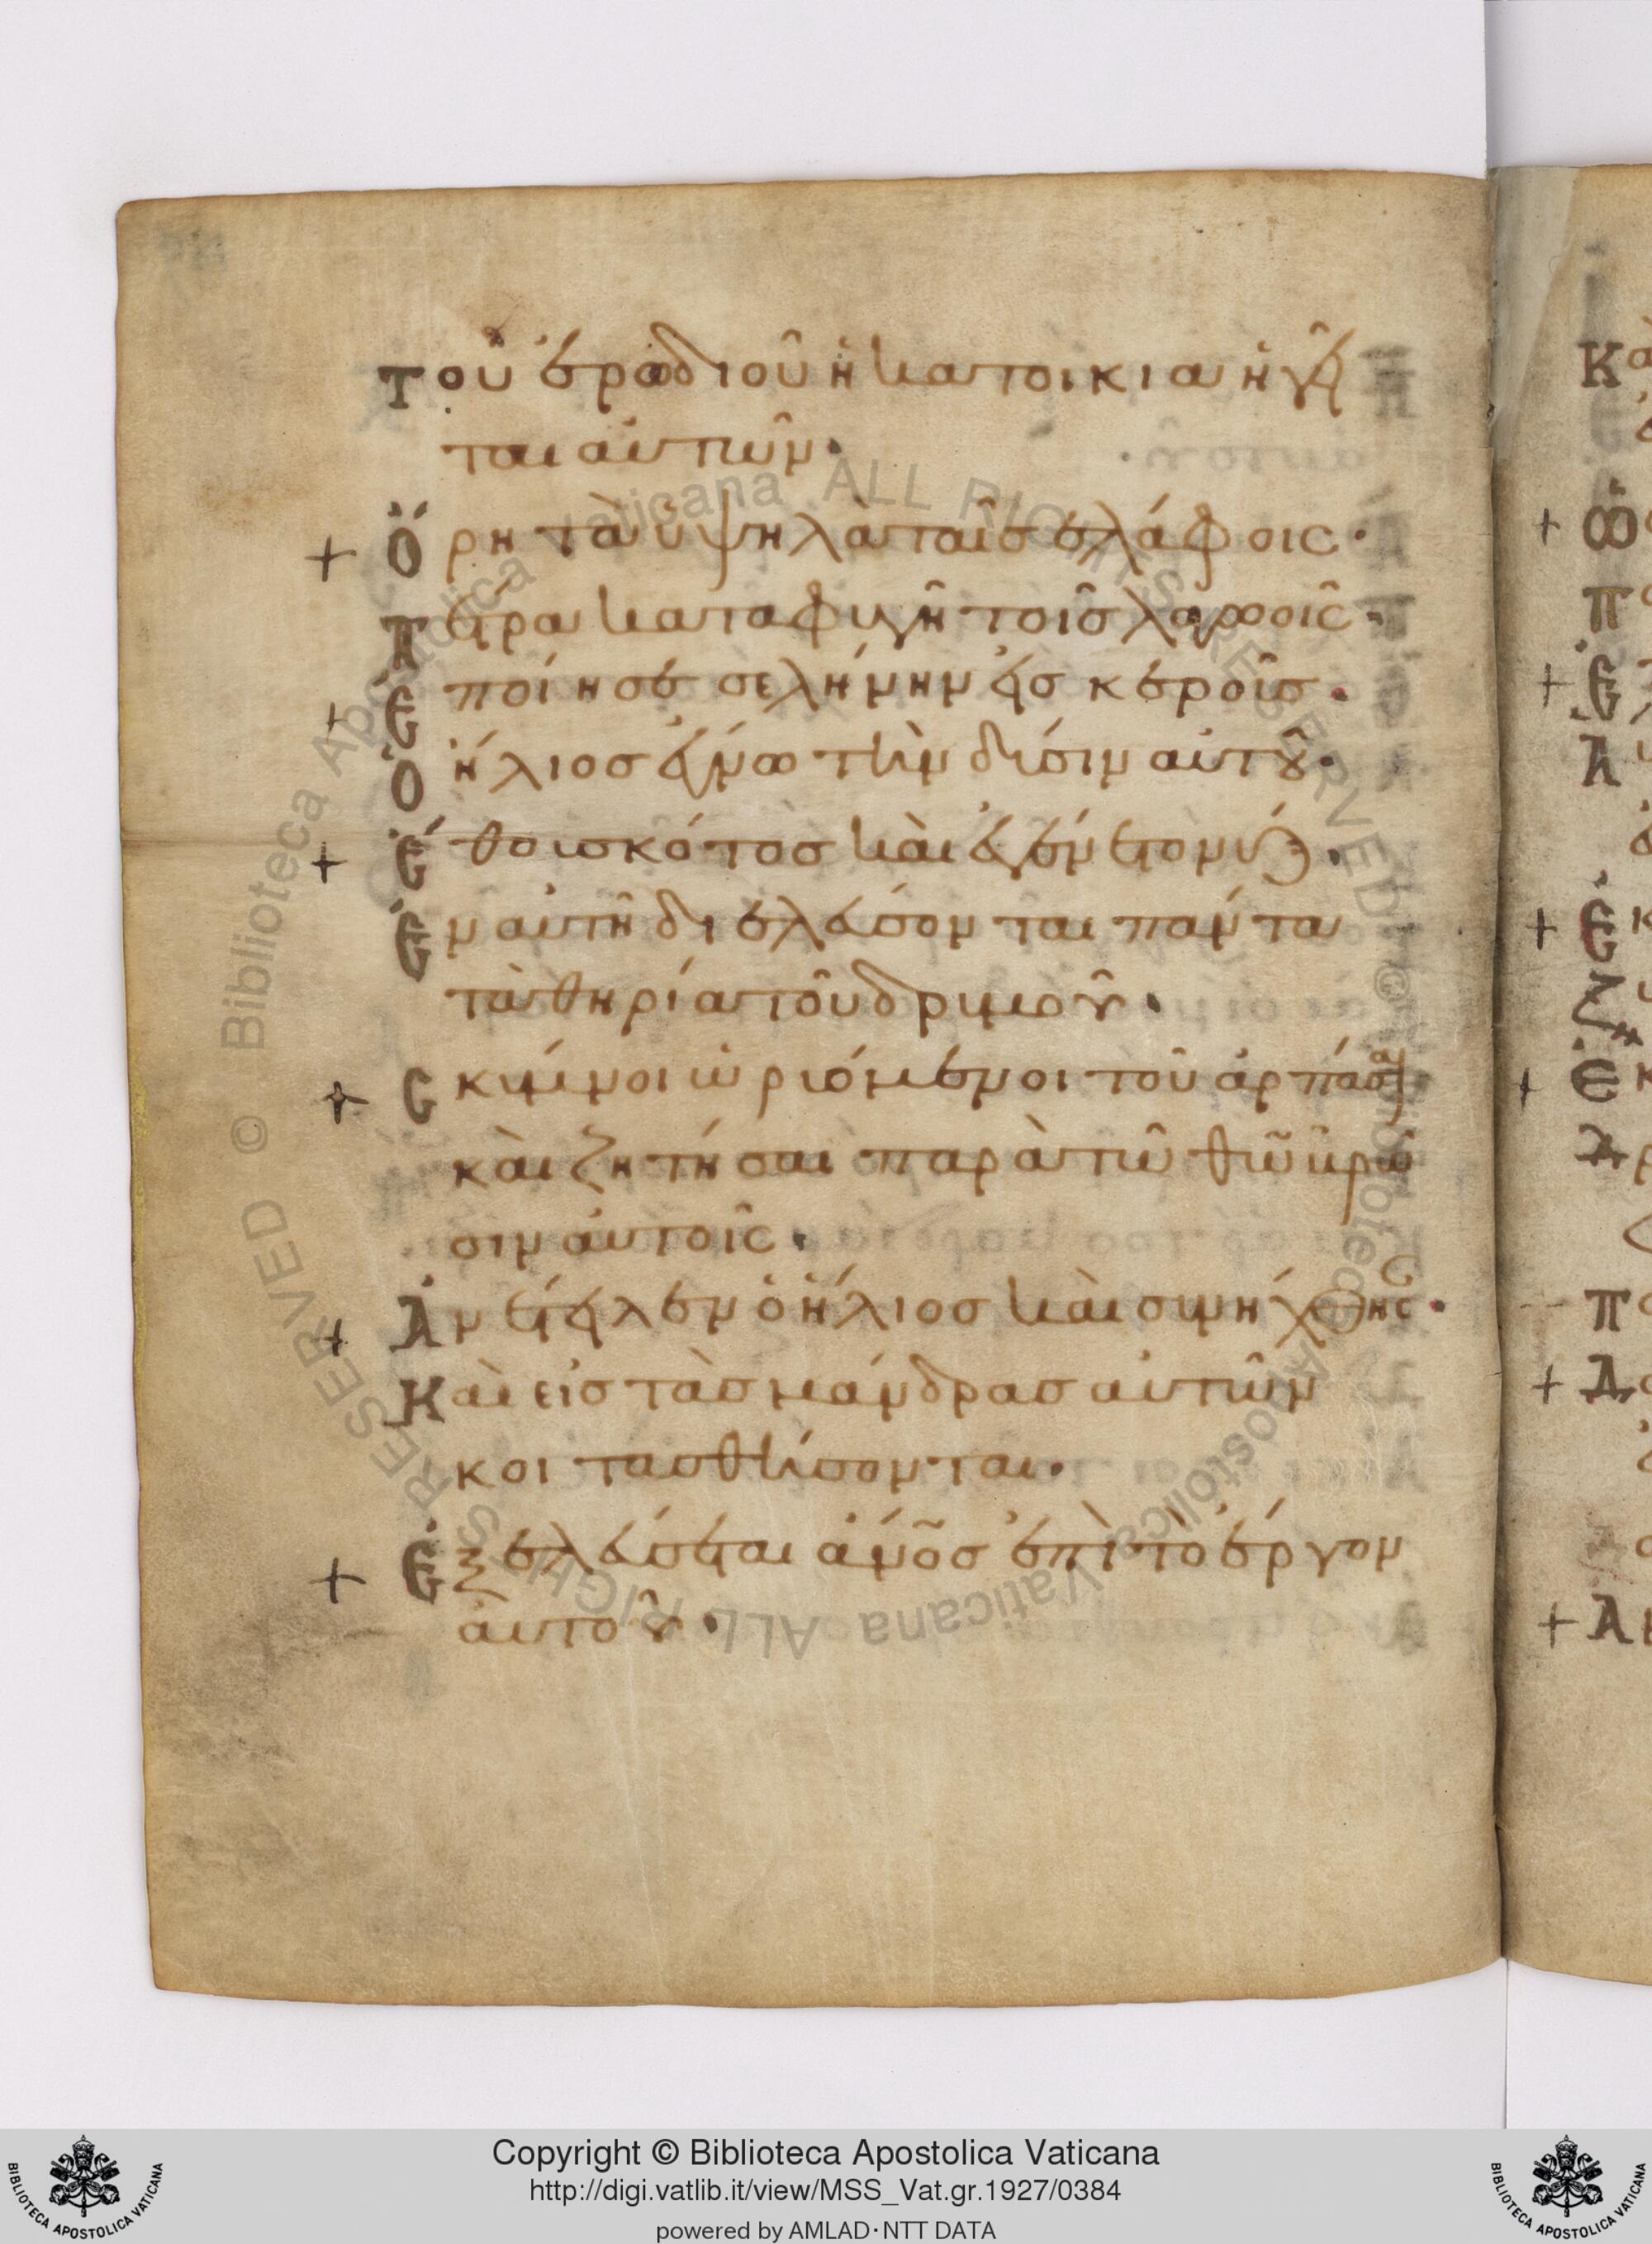 Τοῦ ἐρωδιοῦ ἡ κατοικια ἡγεῖ
ται αὐτῶν·
+ Ὄρη τὰ ὑψηλὰ ταῖσ ἐλάφοις·
Πέτρα καταφυγὴ τοῖσ λαγωοῖς·
+ Ἐποίησε σελήνην εἰσ κεροῖσ·
Ὁ ἥλιοσ ἔγνω τὴν δύσιν αὐτοῦ·
+ Ἔθου σκότοσ καὶ ἐγένετο νύξ·
Ἐν αὐτῆ διελεύσονται παντα
τὰ θηρία τοῦ δρυμοῦ·
+ Σκύμνοι ὠρυόμενοι τοῦ ἁρπάσαι
καὶ ζητῆσαι παρὰ τῶ θῶ βρῶ
σιν αὐτοῖς·
+ Ἀνέτειλεν ὁ ἥλιοσ καὶ συνήχθησ·
Καὶ εἰσ τὰσ μάνδρασ αὐτῶν
κοιτασθήσονται·
+ Ἐξελεύσεται ἀνο͂σ ἐπὶ τὸ ἔργον
αὐτοῦ·
© Biblioteca Apostolica Vaticana ALL RIGHTS RESERVED
© Biblioteca Apostolica Vaticana ALL RIGHTS RESERVED
BIBLIOTECA APOSTOLICA VATICANA
Copyright © Biblioteca Apostolica Vaticana
http://digi.vatlib.it/view/MSS_Vat.gr.1927/0384
powered by AMLAD·NTT DATA
BIBLIOTECA APOSTOLICA VATICANA